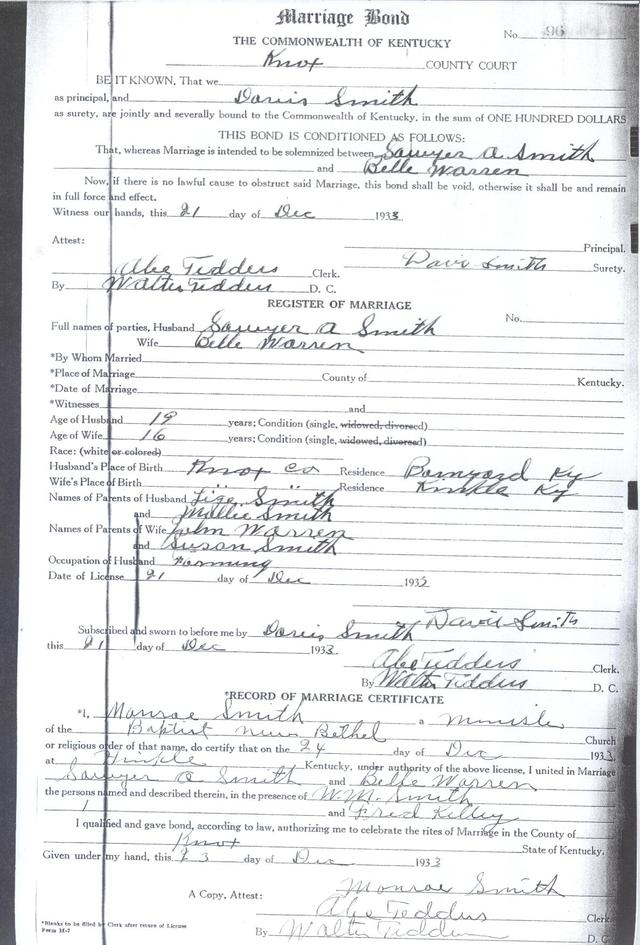 Marriage Bond
No. 96
THE COMMONWEALTH OF KENTUCKY
Knox COUNTY COURT
BE IT KNOWN, That we
as principal, and Davis Smith
as surety, are jointly and severally bound to the Commonwealth of Kentucky, in the sum of ONE HUNDRED DOLLARS
THIS BOND IS CONDITIONED AS FOLLOWS:
That, whereas Marriage is intended to be solemnized between Sawyer A Smith
and Belle Warren
Now, if there is no lawful cause to obstruct said Marriage, this bond shall be void, otherwise it shall be and remain
in full force and effect.
Witness our hands, this 21 day of Dec 1933
Attest:
Principal.
Abe Tedders Clerk. Davis Smith Surety.
By Walter Tedders D. C.
REGISTER OF MARRIAGE
No.
Full names of parties, Husband Sawyer A Smith
Wife Belle Warren
*By Whom Married
*Place of Marriage County of Kentucky.
*Date of Marriage
*Witnesses and
Age of Husband 19 years; Condition (single, widowed, divorced)
Age of Wife 16 years; Condition (single, widowed, divorced)
Race: (white or colored)
Husband's Place of Birth Knox Co Residence Ky
Wife's Place of Birth " " Residence Hinkle Ky
Names of Parents of Husband Smith
and Mollie Smith
Names of Parents of Wife John Warren
and Susan Smith
Occupation of Husband Farming
Date of License 21 day of Dec 1933
Davis Smith
Subscribed and sworn to before me by Davis Smith
this 21 day of Dec 1933
Abe Tedders Clerk.
By Walter Tedders D. C.
*RECORD OF MARRIAGE CERTIFICATE
*I, Monroe Smith a Minister
of the Baptist New Bethel Church
or religious order of that name, do certify that on the 24 day of Dec 1933
at Hinkle Kentucky, under authority of the above license, I united in Marriage
Sawyer A Smith and Belle Warren
the persons named and described therein, in the presence of W. M. Smith
and Fred Kelley
I qualified and gave bond, according to law, authorizing me to celebrate the rites of Marriage in the County of
Knox State of Kentucky.
Given under my hand, this 23 day of Dec 1933
Monroe Smith
A Copy, Attest: Abe Tedders Clerk
By Walter Tedders D. C.
*Blanks to be filled by Clerk after return of License
Form M-7